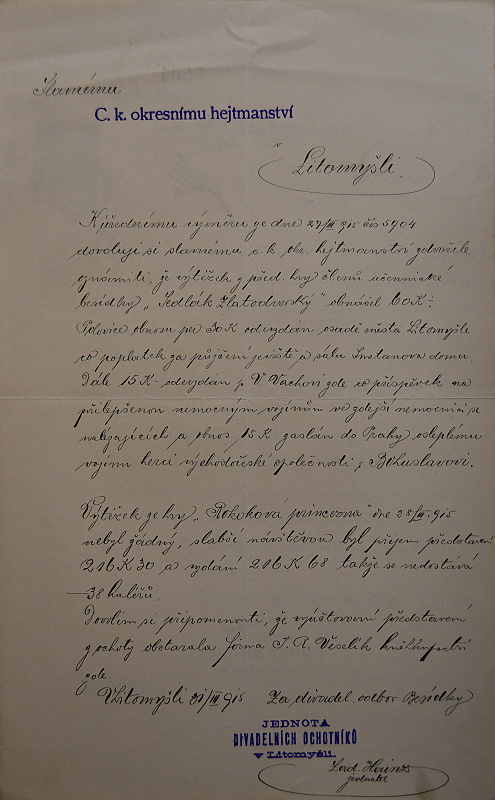 Slavnému
C. k. okresnímu hejtmanství
v
Litomyšli.
K úřednímu výměru ze dne 27/III 915 čís 5904
dovoluji si slavnému c. k. okr. hejtmanství zdvořile
oznámiti, že výtěžek z před. hry členů učennické
besídky „Sedlák Zlatodvorský" obnášel 60 K-
Polovice obnosu per 30 K odevzdán osadě města Litomyšle
co poplatek za půjčení jeviště a sálu Smetanova domu.
Dále 15 K- odevzdán p. V. Vachovi zde co příspěvek na
přilepšenou nemocným vojínům ve zdejší nemocnici se
nalézajících a obnos 15 K zaslán do Prahy osleplému
vojínu herci východočeské společnosti p. Bohuslavovi.
Výtěžek ze hry „Rokoková princezna" dne 28/III. 915
nebyl žádný, slabší návštěvou byl příjem představení
216 K 30 a vydání 216 K 68 takže se nedostává
38 haléřů.
Dovolím si připomenouti, že vyúčtování představení
z ochoty obstarala firma J. R. Veselík kněhkupectví
zde.
V Litomyšli 31/III 915 Za divadel. odbor Besídky
JEDNOTA
DIVADELNÍCH OCHOTNÍKŮ
v Litomyšli.
Lad. Hainz
jednatel